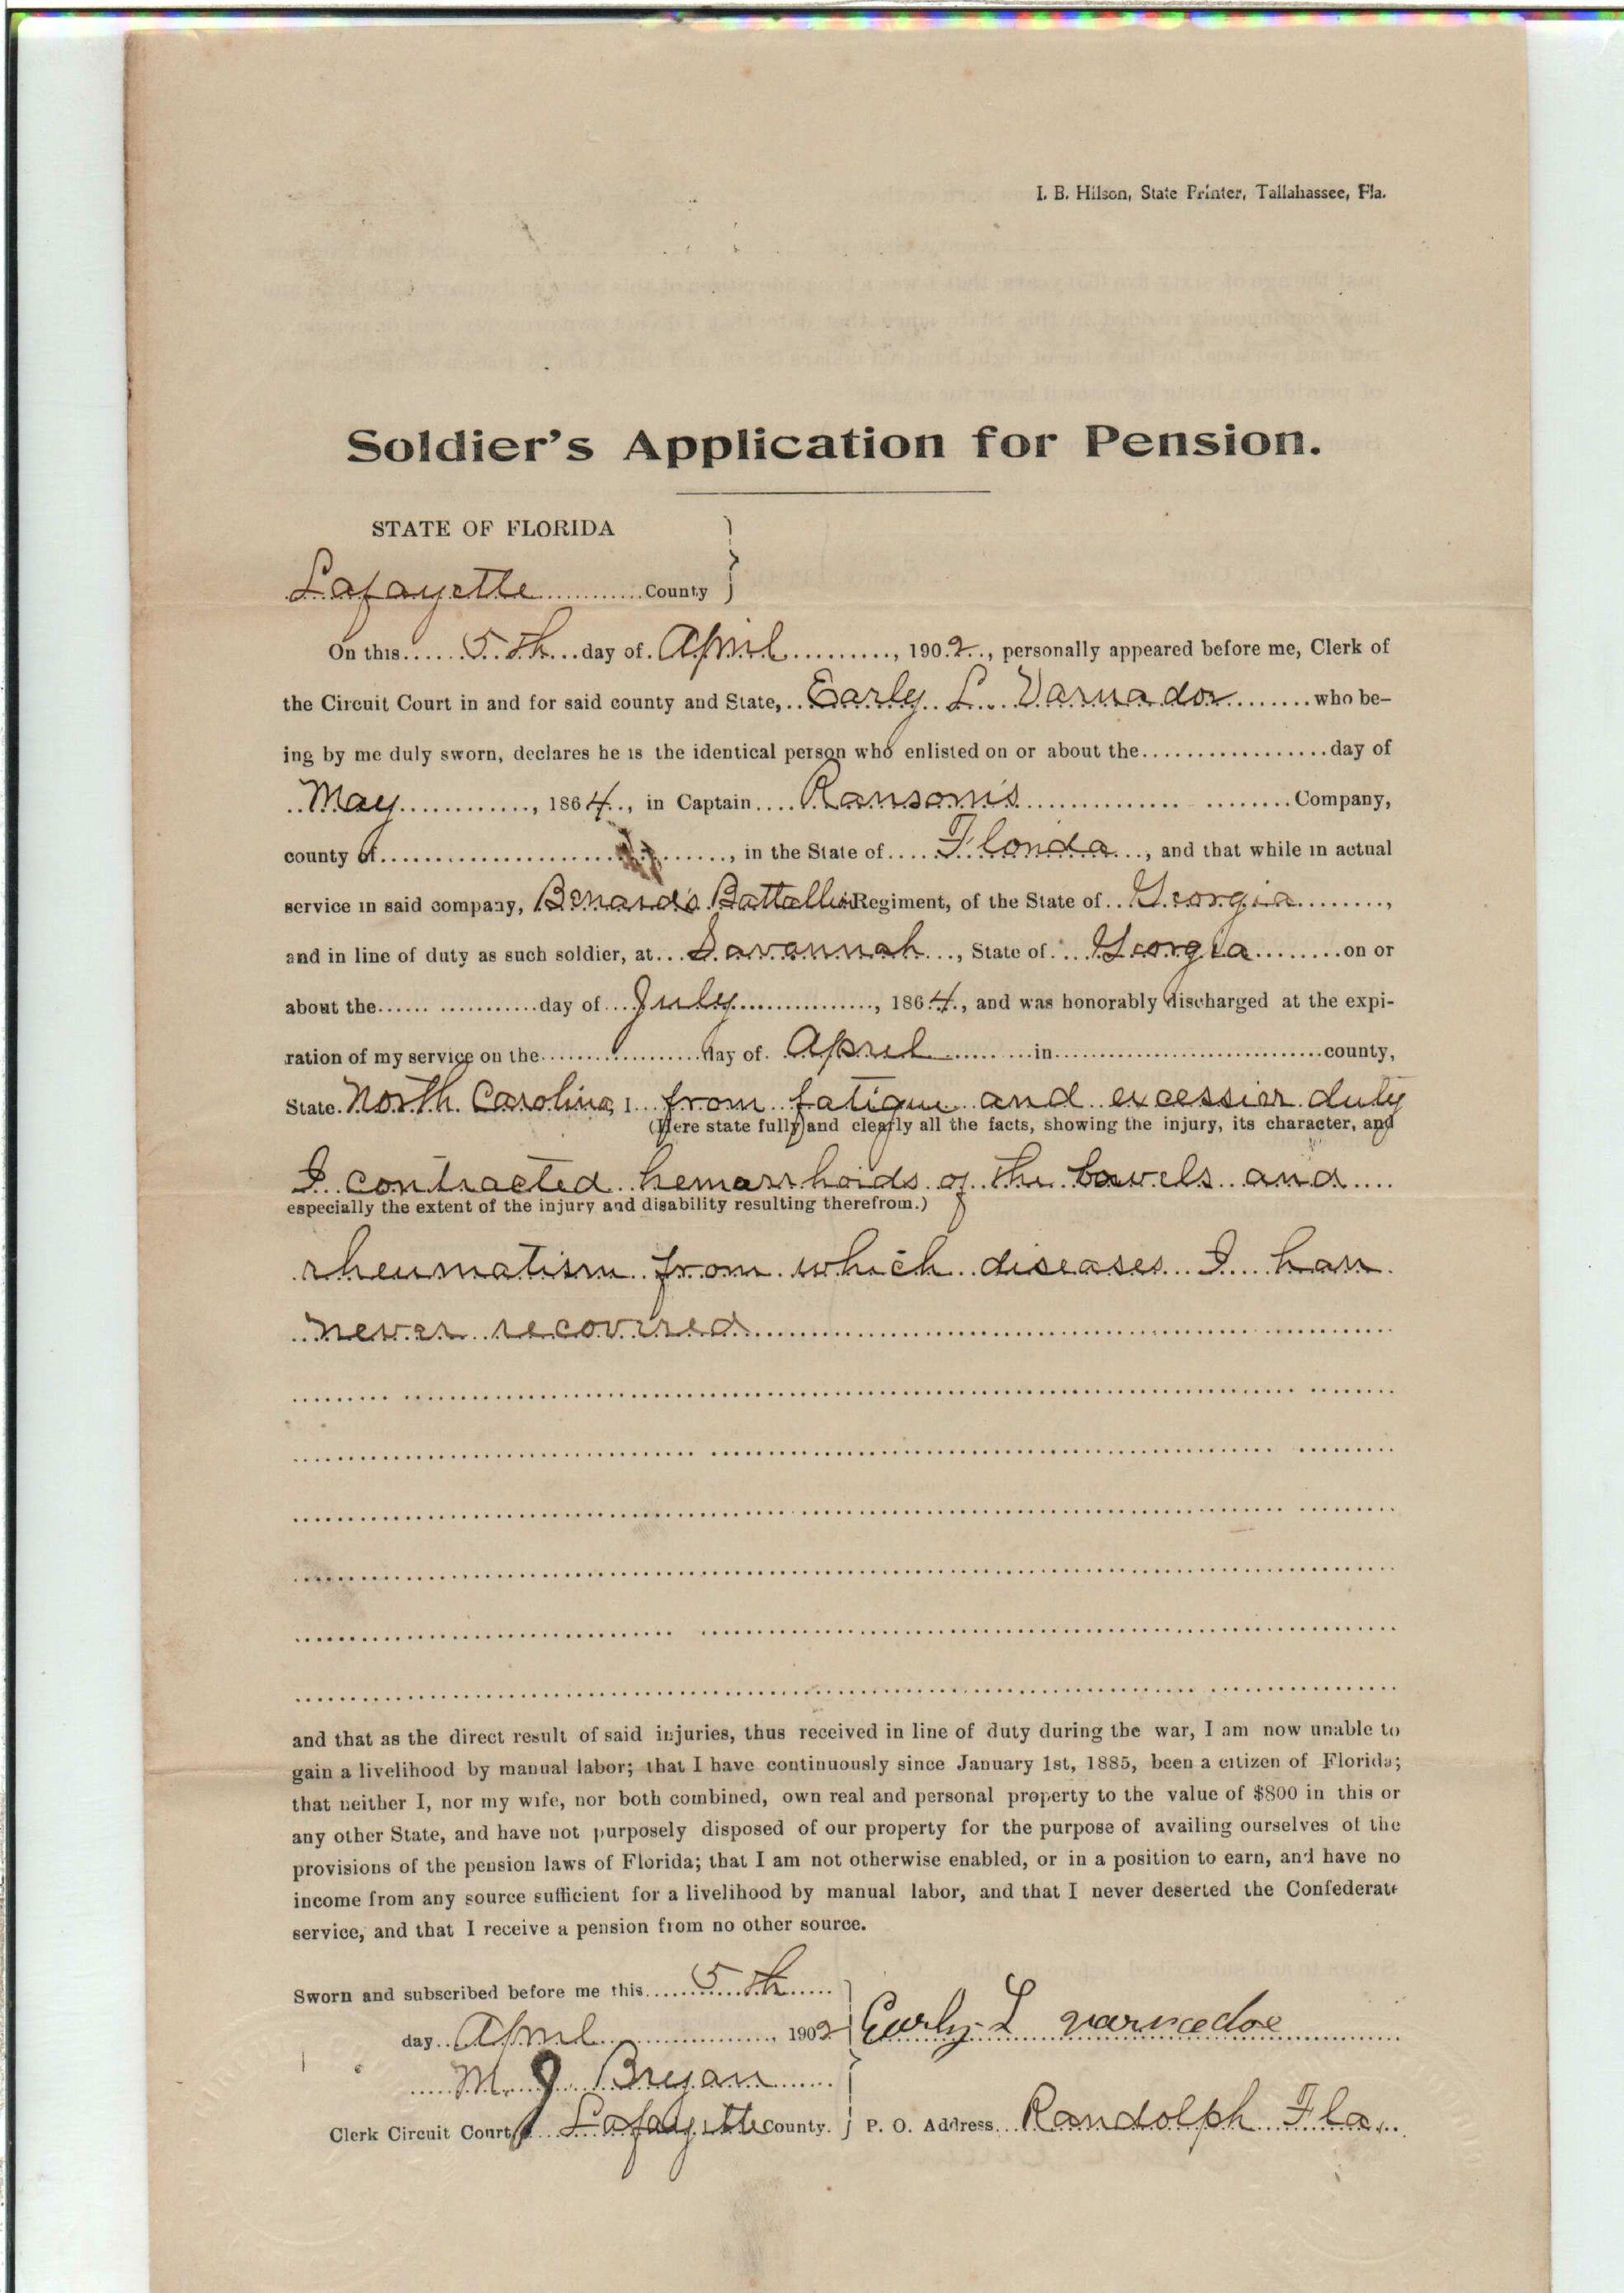 I. B. Hilson, State Printer, Tallahassee, Fla.
Soldier's Application for Pension.
STATE OF FLORIDA
Lafayette County
On this 5th day of April, 1902, personally appeared before me, Clerk of
the Circuit Court in and for said county and State, Early L. Varnador who be-
ing by me duly sworn, declares he is the identical person who enlisted on or about the day of
May, 1864, in Captain Ransom's Company,
county of, in the State of Florida, and that while in actual
service in said company, Benard's Battallion Regiment, of the State of Georgia,
and in line of duty as such soldier, at Savannah, State of Georgia on or
about the day of July, 1864, and was honorably discharged at the expi-
ration of my service on the day of April in county,
State North Carolina, I from fatigue and excessive duty
(Here state fully and clearly all the facts, showing the injury, its character, and
I contracted hemarrhoids of the bowels and
especially the extent of the injury and disability resulting therefrom.)
rheumatism from which diseases I have
never recovered
and that as the direct result of said injuries, thus received in line of duty during the war, I am now unable to
gain a livelihood by manual labor; that I have continuously since January 1st, 1885, been a citizen of Florida;
that neither I, nor my wife, nor both combined, own real and personal property to the value of $800 in this or
any other State, and have not purposely disposed of our property for the purpose of availing ourselves of the
provisions of the pension laws of Florida; that I am not otherwise enabled, or in a position to earn, and have no
income from any source sufficient for a livelihood by manual labor, and that I never deserted the Confederate
service, and that I receive a pension from no other source.
Sworn and subscribed before me this 5th
day April, 1902
Early L varnedoe
M. J Bryan
Clerk Circuit Court, Lafayette County.
P. O. Address Randolph Fla.